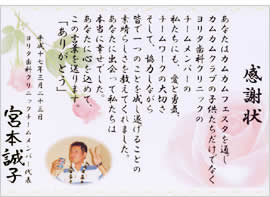 感謝状
あなたはカムカムフェスタを通し
カムカムクラブの子供たちだけでなく
ヨリタ歯科クリニックの
チームメンバーの
私たちにも、愛と勇気、
チームワークの大切さ
そして、協力しながら
皆で一つのことを成し遂げることの
素晴らしさを教えてくれました。
あなたに出会えて私たちは
本当に幸せでした。
あなたに心を込めて、
この言葉を送ります。
「ありがとう」
平成十七年三月二十三日
ヨリタ歯科クリニックチームメンバー代表
宮本誠子